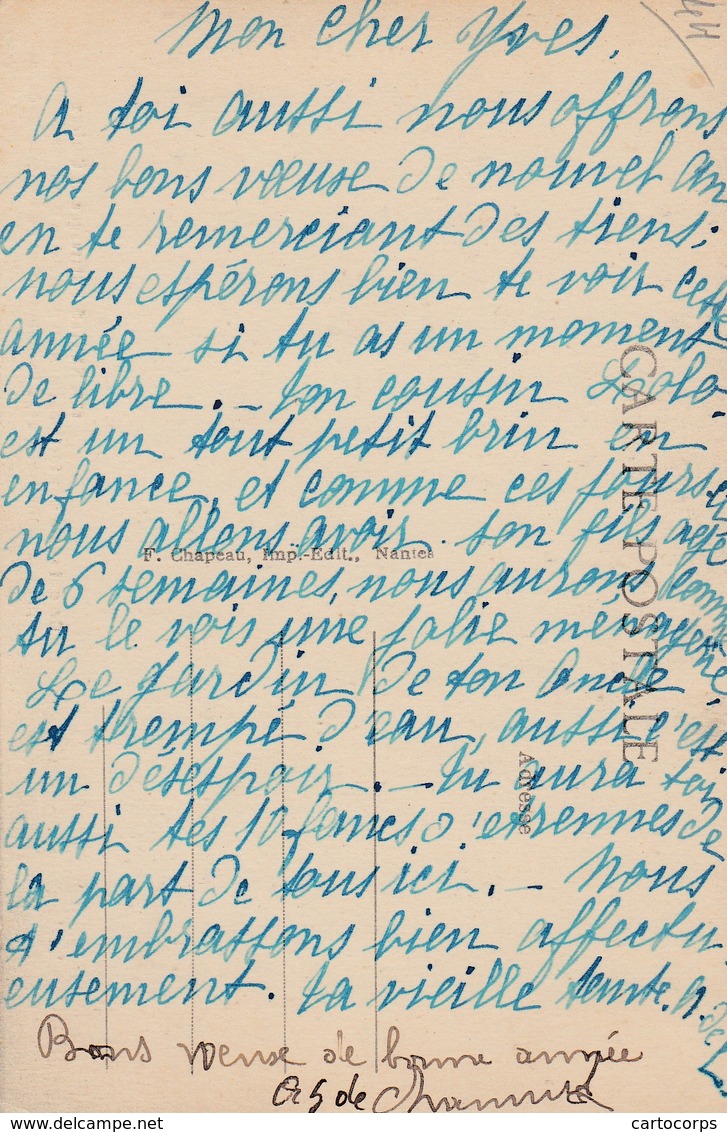 Mon cher Yves,
A toi aussi nous offrons
nos bons vœuse de nouvel an
en te remerciant des tiens;
nous espérons bien te voir cette
année si tu as un moment
de libre. _ Ton cousin Lolo
est un tout petit brin en
enfance, et comme ces jours ci
nous allons avoir son fils agé
de 6 semaines, nous aurons comme
tu le vois une jolie ménagerie
Le jardin de ton Oncle
est trempé d'eau, aussi c'est
un désespoir. _ Tu aura toi
aussi tes 10 francs d'etrennes de
la part de tous ici. _ Nous
t'embrassons bien affectu
eusement. Ta vieille tante. A. de
Bons vœuse de bonne année
de
F. Chapeau, Imp.-Edit., Nantes
CARTE POSTALE
Adresse
cartocorps